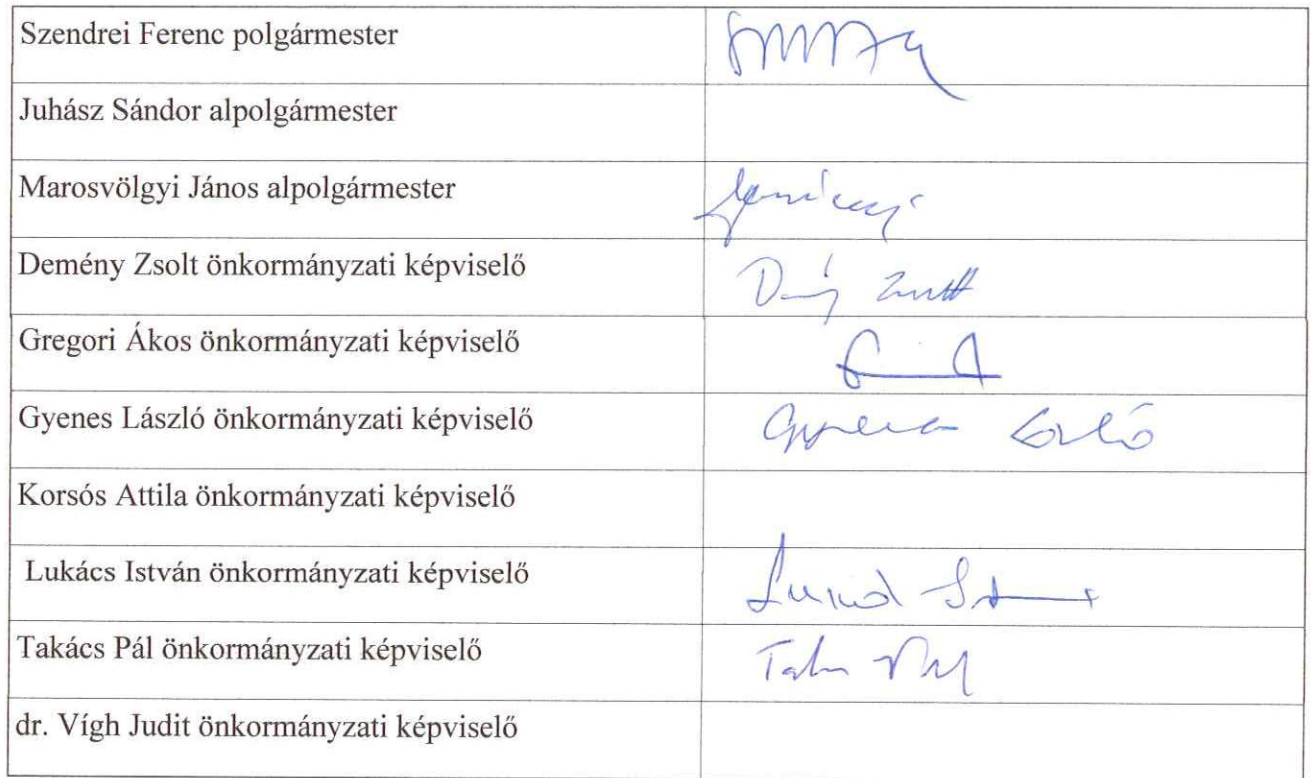 Szendrei Ferenc polgármester
Juhász Sándor alpolgármester
Marosvölgyi János alpolgármester
Demény Zsolt önkormányzati képviselő
Gregori Ákos önkormányzati képviselő
Gyenes László önkormányzati képviselő
Korsós Attila önkormányzati képviselő
Lukács István önkormányzati képviselő
Takács Pál önkormányzati képviselő
dr. Vígh Judit önkormányzati képviselő